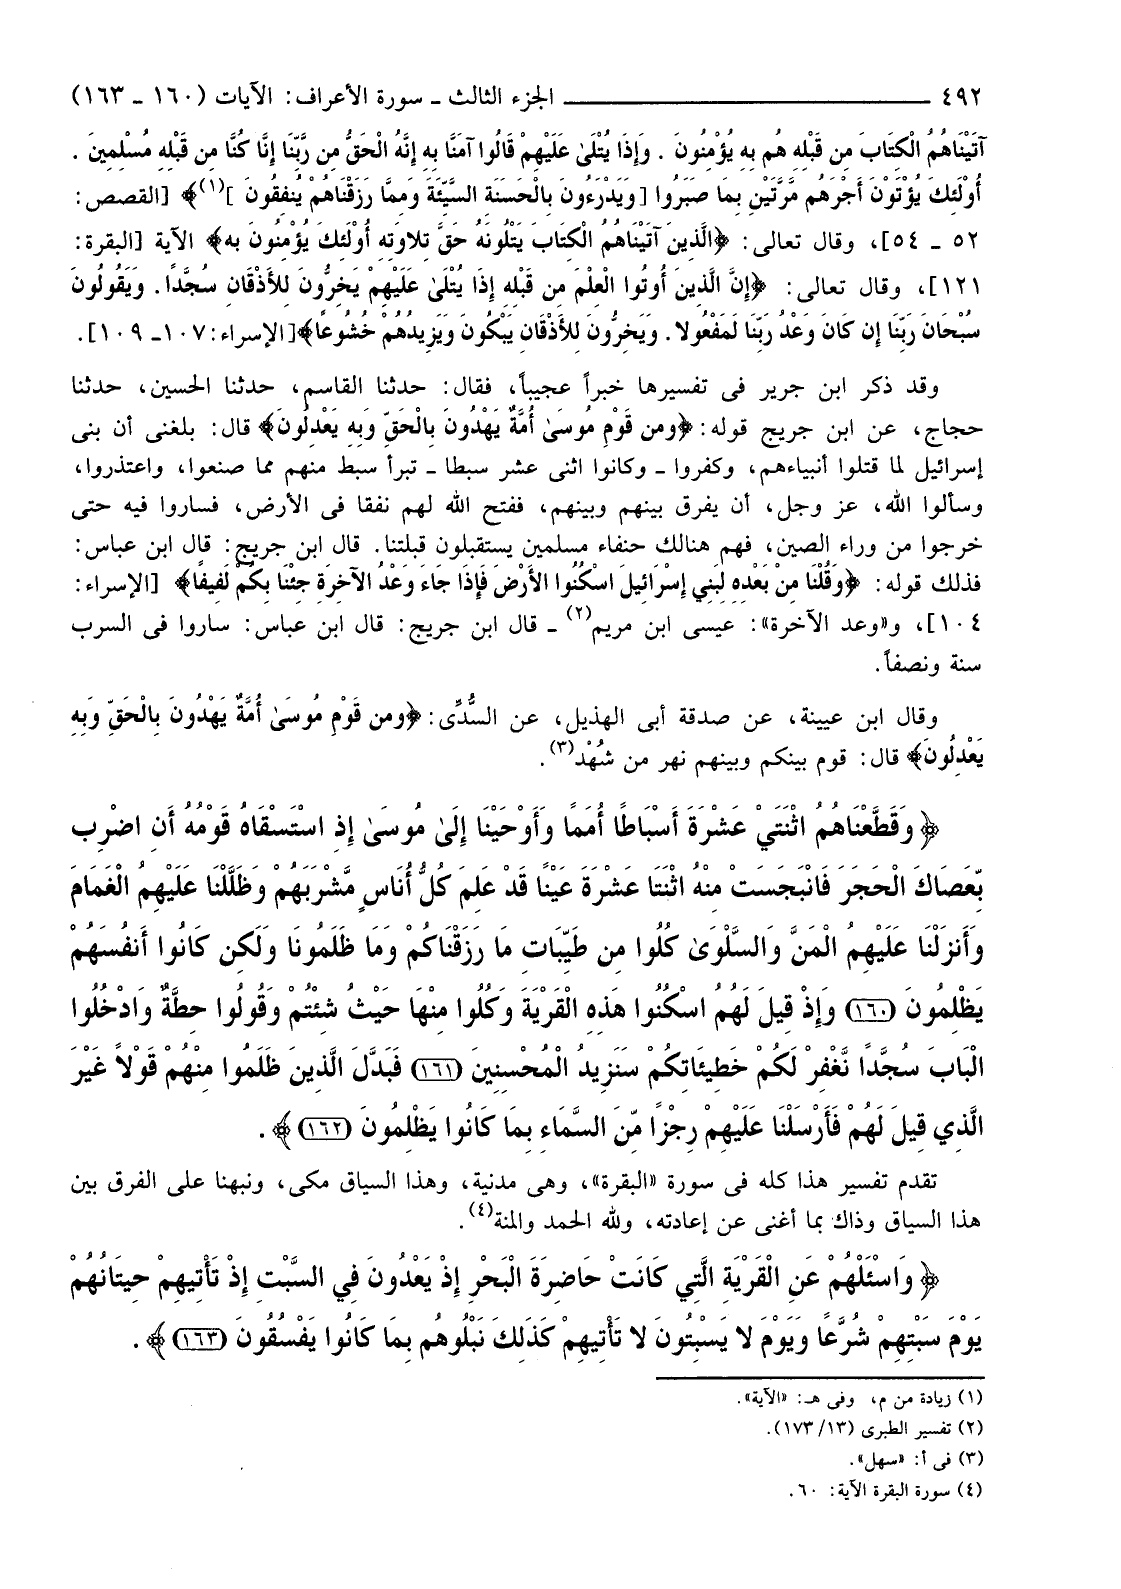 ٤٩٢ ـــــــــــــــــــــــــــــــــــــ الجزء الثالث ـ سورة الأعراف: الآيات (١٦٠ ـ ١٦٣)
آتَيْنَاهُمُ الْكِتَابَ مِن قَبْلِهِ هُم بِهِ يُؤْمِنُونَ . وَإِذَا يُتْلَىٰ عَلَيْهِمْ قَالُوا آمَنَّا بِهِ إِنَّهُ الْحَقُّ مِن رَّبِّنَا إِنَّا كُنَّا مِن قَبْلِهِ مُسْلِمِينَ .
أُوْلَئِكَ يُؤْتَوْنَ أَجْرَهُم مَّرَّتَيْنِ بِمَا صَبَرُوا [وَيَدْرَءُونَ بِالْحَسَنَةِ السَّيِّئَةَ وَمِمَّا رَزَقْنَاهُمْ يُنفِقُونَ ](١)﴾ [القصص:
٥٢ ـ ٥٤]، وقال تعالى: ﴿الَّذِينَ آتَيْنَاهُمُ الْكِتَابَ يَتْلُونَهُ حَقَّ تِلاوَتِهِ أُوْلَئِكَ يُؤْمِنُونَ بِهِ﴾ الآية [البقرة:
١٢١]، وقال تعالى: ﴿إِنَّ الَّذِينَ أُوتُوا الْعِلْمَ مِن قَبْلِهِ إِذَا يُتْلَىٰ عَلَيْهِمْ يَخِرُّونَ لِلأَذْقَانِ سُجَّدًا. وَيَقُولُونَ
سُبْحَانَ رَبِّنَا إِن كَانَ وَعْدُ رَبِّنَا لَمَفْعُولا. وَيَخِرُّونَ لِلأَذْقَانِ يَبْكُونَ وَيَزِيدُهُمْ خُشُوعًا﴾[الإسراء:١٠٧ـ ١٠٩].
وقد ذكر ابن جرير فى تفسيرها خبراً عجيباً، فقال: حدثنا القاسم، حدثنا الحسين، حدثنا
حجاج، عن ابن جريج قوله: ﴿وَمِن قَوْمِ مُوسَىٰ أُمَّةٌ يَهْدُونَ بِالْحَقِّ وَبِهِ يَعْدِلُونَ﴾ قال: بلغنى أن بنى
إسرائيل لما قتلوا أنبياءهم، وكفروا ـ وكانوا اثنى عشر سبطا ـ تبرأ سبط منهم مما صنعوا، واعتذروا،
وسألوا الله، عز وجل، أن يفرق بينهم وبينهم، ففتح الله لهم نفقا فى الأرض، فساروا فيه حتى
خرجوا من وراء الصين، فهم هنالك حنفاء مسلمين يستقبلون قبلتنا. قال ابن جريج: قال ابن عباس:
فذلك قوله: ﴿وَقُلْنَا مِنْ بَعْدِهِ لِبَنِي إِسْرَائِيلَ اسْكُنُوا الأَرْضَ فَإِذَا جَاءَ وَعْدُ الآخِرَةِ جِئْنَا بِكُمْ لَفِيفًا﴾ [الإسراء:
١٠٤]، و«وعد الآخرة»: عيسى ابن مريم(٢) ـ قال ابن جريج: قال ابن عباس: ساروا فى السرب
سنة ونصفاً.
وقال ابن عيينة، عن صدقة أبى الهذيل، عن السُّدِّى: ﴿وَمِن قَوْمِ مُوسَىٰ أُمَّةٌ يَهْدُونَ بِالْحَقِّ وَبِهِ
يَعْدِلُونَ﴾ قال: قوم بينكم وبينهم نهر من شُهْد(٣).
﴿وَقَطَّعْنَاهُمُ اثْنَتَيْ عَشْرَةَ أَسْبَاطًا أُمَمًا وَأَوْحَيْنَا إِلَىٰ مُوسَىٰ إِذِ اسْتَسْقَاهُ قَوْمُهُ أَنِ اضْرِب
بِّعَصَاكَ الْحَجَرَ فَانْبَجَسَتْ مِنْهُ اثْنَتَا عَشْرَةَ عَيْنًا قَدْ عَلِمَ كُلُّ أُنَاسٍ مَّشْرَبَهُمْ وَظَلَّلْنَا عَلَيْهِمُ الْغَمَامَ
وَأَنزَلْنَا عَلَيْهِمُ الْمَنَّ وَالسَّلْوَىٰ كُلُوا مِن طَيِّبَاتِ مَا رَزَقْنَاكُمْ وَمَا ظَلَمُونَا وَلَكِن كَانُوا أَنفُسَهُمْ
يَظْلِمُونَ (١٦٠) وَإِذْ قِيلَ لَهُمُ اسْكُنُوا هَذِهِ الْقَرْيَةَ وَكُلُوا مِنْهَا حَيْثُ شِئْتُمْ وَقُولُوا حِطَّةٌ وَادْخُلُوا
الْبَابَ سُجَّدًا نَّغْفِرْ لَكُمْ خَطِيئَاتِكُمْ سَنَزِيدُ الْمُحْسِنِينَ (١٦١) فَبَدَّلَ الَّذِينَ ظَلَمُوا مِنْهُمْ قَوْلاً غَيْرَ
الَّذِي قِيلَ لَهُمْ فَأَرْسَلْنَا عَلَيْهِمْ رِجْزًا مِّنَ السَّمَاءِ بِمَا كَانُوا يَظْلِمُونَ (١٦٢)﴾ .
تقدم تفسير هذا كله فى سورة «البقرة»، وهى مدنية، وهذا السياق مكى، ونبهنا على الفرق بين
هذا السياق وذاك بما أغنى عن إعادته، ولله الحمد والمنة(٤).
﴿وَاسْئَلْهُمْ عَنِ الْقَرْيَةِ الَّتِي كَانَتْ حَاضِرَةَ الْبَحْرِ إِذْ يَعْدُونَ فِي السَّبْتِ إِذْ تَأْتِيهِمْ حِيتَانُهُمْ
يَوْمَ سَبْتِهِمْ شُرَّعًا وَيَوْمَ لا يَسْبِتُونَ لا تَأْتِيهِمْ كَذَلِكَ نَبْلُوهُم بِمَا كَانُوا يَفْسُقُونَ (١٦٣)﴾ .
(١) زيادة من م، وفى هـ: «الآية».
(٢) تفسير الطبرى (١٣/ ١٧٣).
(٣) فى أ: «سهل».
(٤) سورة البقرة الآية: ٦٠.